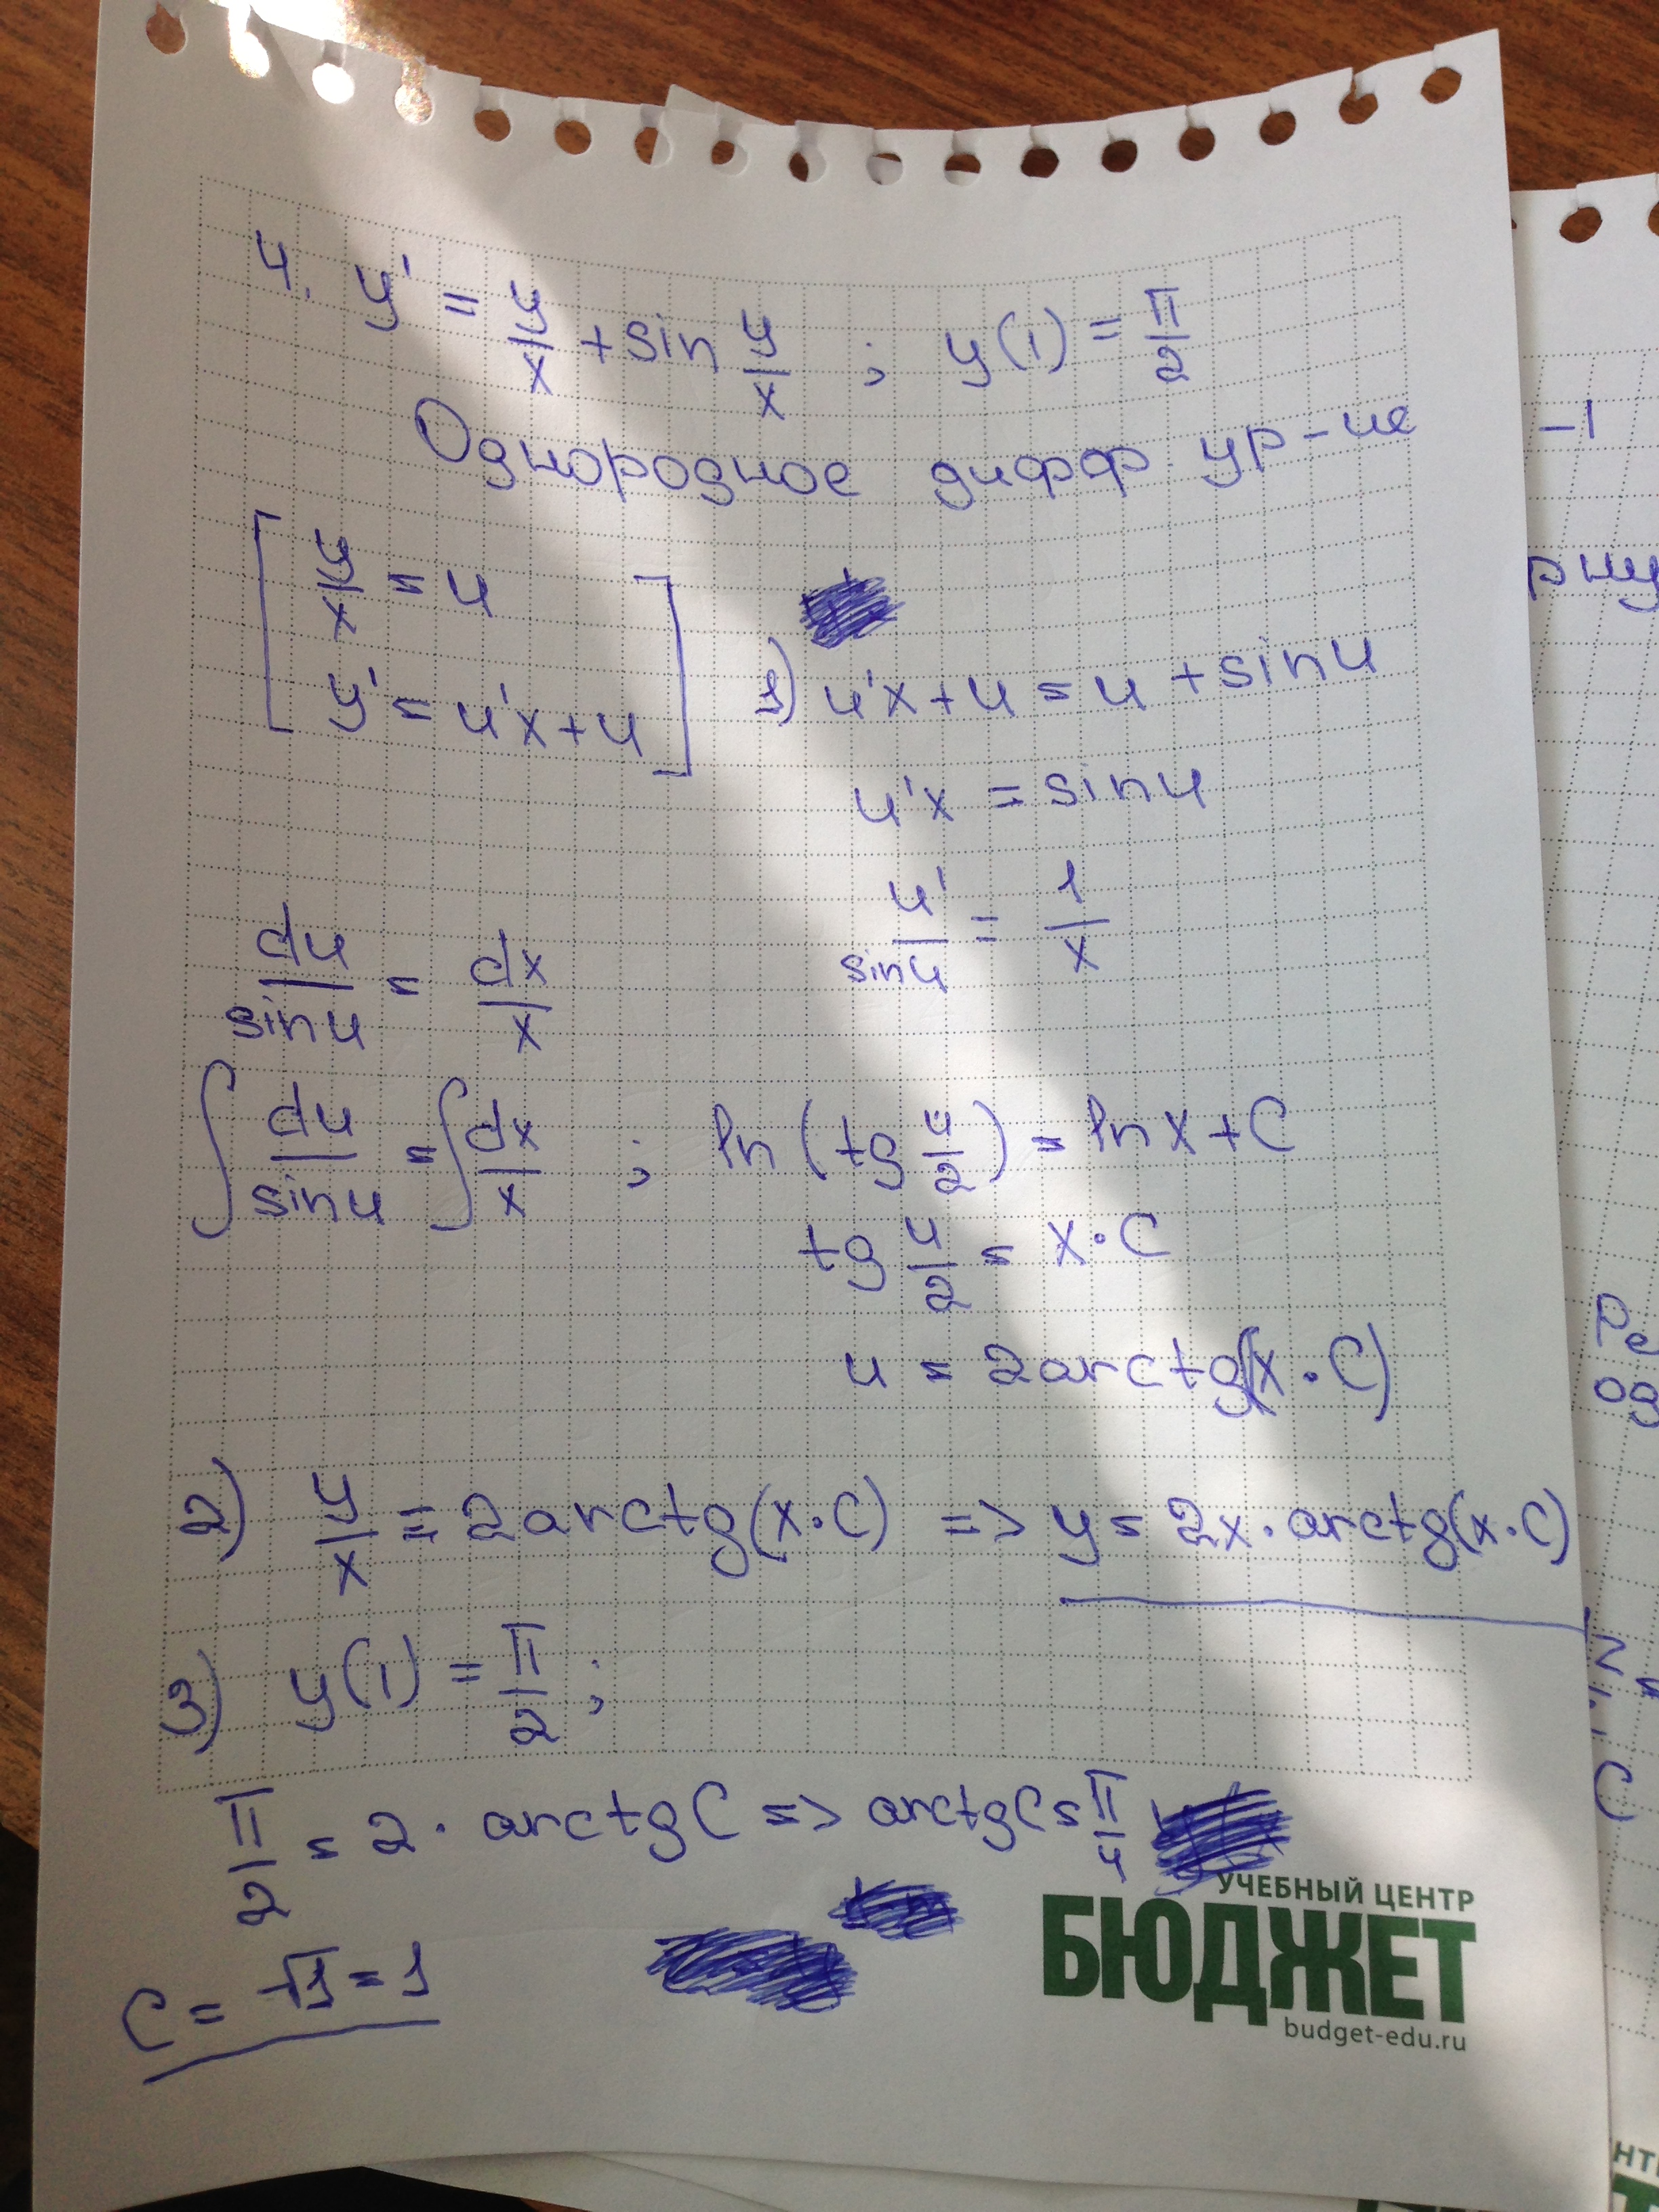 4. y' = y/x + sin y/x ; y(1) = π/2
Однородное дифф. ур-ие
[ y/x = u
y' = u'x+u ]
1) u'x+u = u + sinu
u'x = sinu
u'/sinu = 1/x
du/sinu = dx/x
∫ du/sinu = ∫ dx/x ; ln (tg u/2) = lnx+C
tg u/2 = x·C
u = 2arctg(x·C)
2) y/x = 2arctg(x·C) => y = 2x·arctg(x·C)
3) y(1) = π/2 ;
π/2 = 2· arctgC => arctgC = π/4
C = √1 = 1
УЧЕБНЫЙ ЦЕНТР
БЮДЖЕТ
budget-edu.ru
-1
Ре
од
C